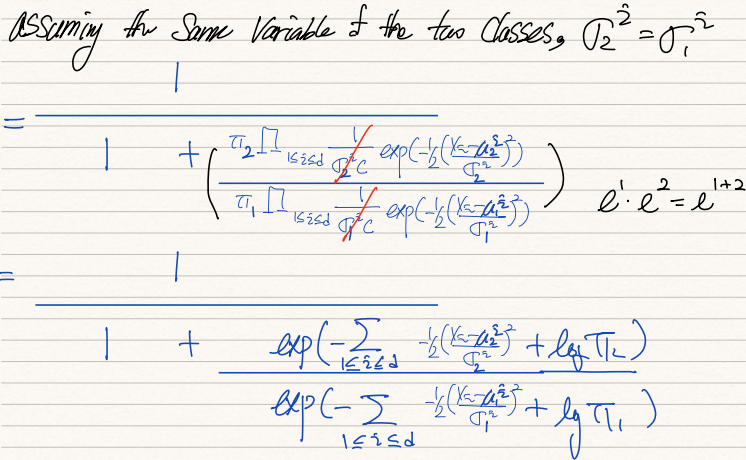 assuming the Same Variable of the two Classes, σ₂^i = σ₁^i
1
= ―――
1 + ( π₂ ∏_{1≤i≤d} 1/(σ₂^i C) exp(-1/2((x_i-μ₂^i)/σ₂^i)²) / π₁ ∏_{1≤i≤d} 1/(σ₁^i C) exp(-1/2((x_i-μ₁^i)/σ₁^i)²) ) e^1 · e^2 = e^{1+2}
1
= ―――
1 + exp(-∑_{1≤i≤d} -1/2((x_i-μ₂^i)/σ₂^i)² + log π₂) / exp(-∑_{1≤i≤d} -1/2((x_i-μ₁^i)/σ₁^i)² + lg π₁)